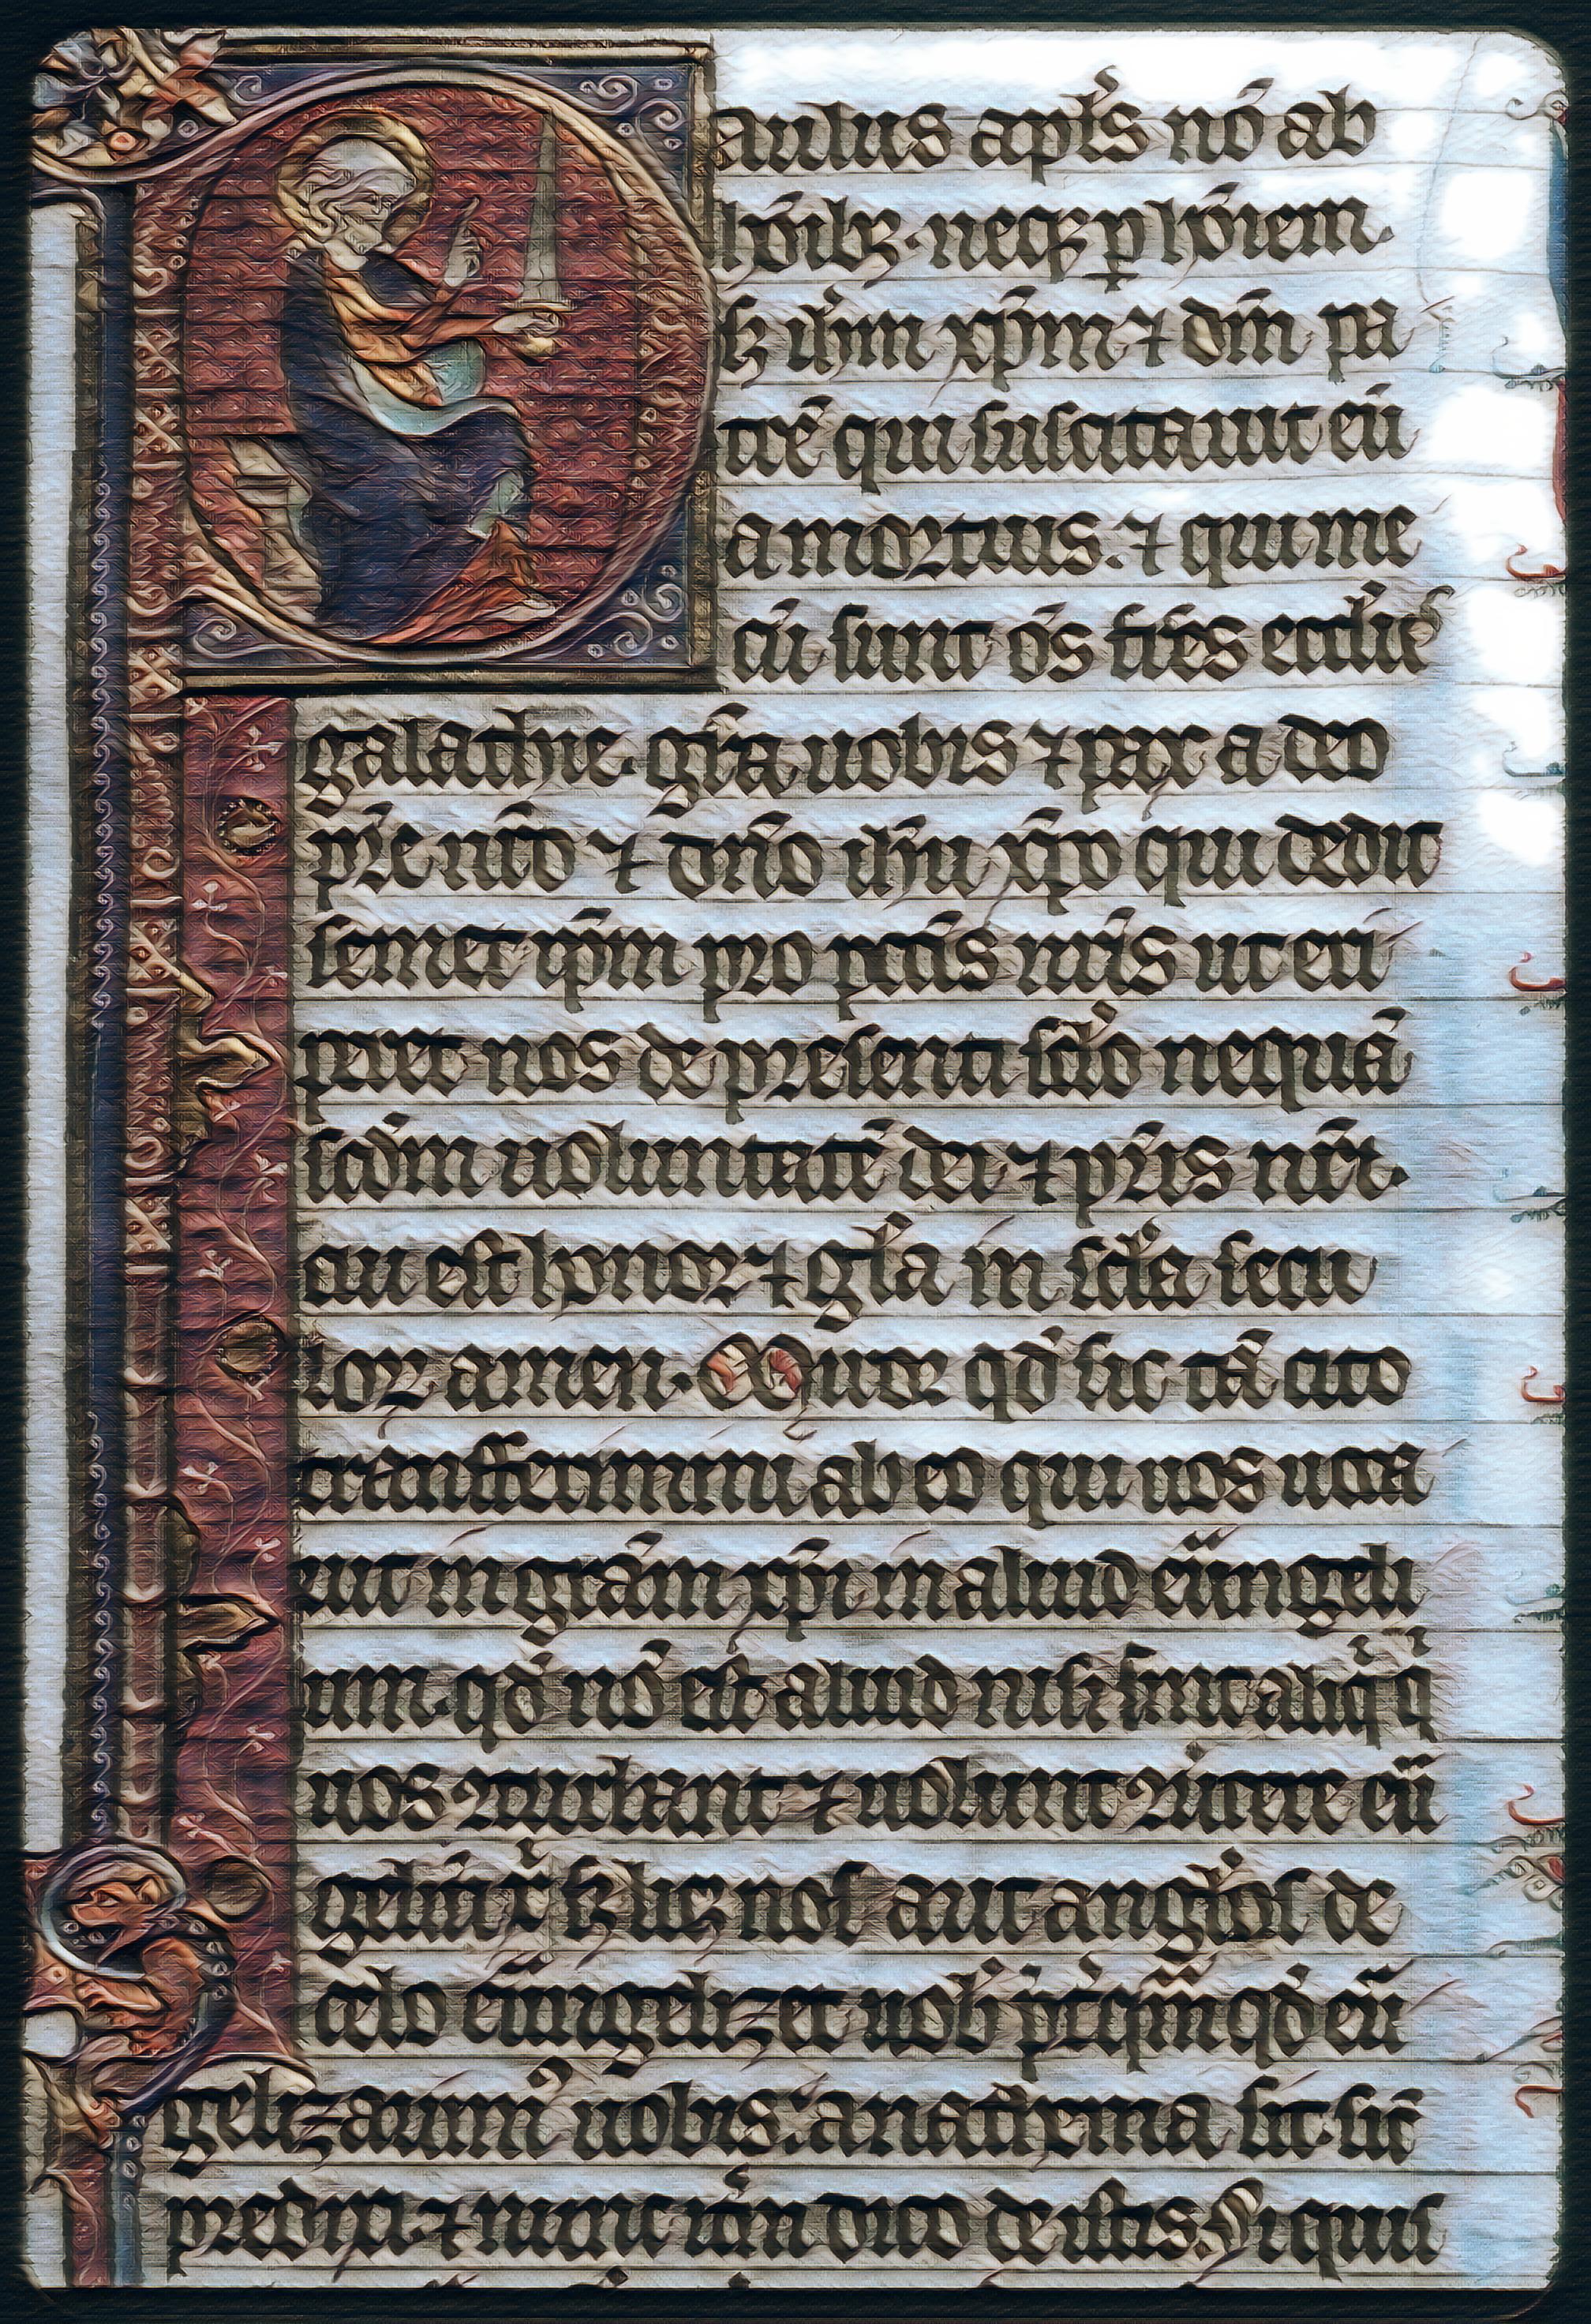 aulus apl̄s nō ab
hōib; neq; p hōıem.
s; ih̄m xp̄m ⁊ dm̄ pa
trē qui suscitauit eū
a mortuis. ⁊ qui me
cū sunt om̄s fr̄es eccl̄ie
galathie. gr̄a uobis ⁊ pax a deo
pr̄e nr̄o ⁊ dn̄o ih̄u xp̄o qui dedit
semet ip̄m pro pctīs nr̄is ut eri
peret nos de presenti scl̄o nequā
scdm̄ uoluntatē dei ⁊ pr̄is nr̄i.
cui est honor ⁊ gl̄a in scl̄a secu
loꝝ amen. Miror qd̄ sic tā cito
transferimini ab eo qui uos uoca
uit in grām xp̄i in aliud eūangeli
um. qd̄ nō est aliud nisi sunt aliq̄ q̄
uos ꝯturbant ⁊ uolunt ꝯuertere eū
geliū xp̄i s; lic; nos aut angl̄os de
celo eūangelizet uob̄ pr̄qm̄ qd̄ eū
gelizauim᷒ uobis. anathema sit. sic̄
predixi. ⁊ nunc itm̄ dico de istis. Si quis